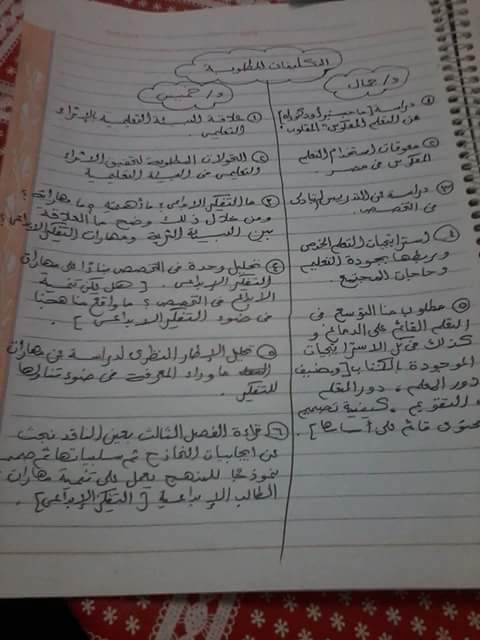 التكليفات المطلوبة
د/ جمال
① دراسة [ماجستير أو دكتوراه]
عن التعلم المعكوس "المقلوب"
② معوقات استخدام التعلم
المعكوس فى مصر.
③ دراسة عن التدريس التبادلى
فى التخصص.
④ استراتيجيات التعلم الخصص
وربطها بجودة التعليم
وحاجات المجتمع.
⑤ مطلوب منا التوسع فى
التعلم القائم على الدماغ و
كذلك فى كل الاستراتيجيات
الموجودة بالكتاب [ويضيف
دور المعلم، دور المتعلم
، التقويم، كيفية تصميم
محتوى قائم على أساسها].
د/ خميس
① علاقة البيئة التعليمية بالإثراء
التعليمى.
② التحولات المطلوبة لتحقيق الإثراء
التعليمى فى البيئة التعليمية
③ ما التفكير الإبداعى؟ ما أهميته؟ ما مهاراته؟
ومن خلال ذلك وضح ما العلاقة
بين البيئة الثرية ومهارات التفكير الإبداعى؟
④ تحليل وحدة فى التخصص بناءً على مهارات
التفكير الإبداعى. [هل يمكن تنمية
الإبداع فى التخصص؟ ما واقع مناهجنا
فى ضوء التفكير الإبداعى].
⑤ تحليل الإطار النظرى لدراسة عن مهارات
ما وراء المعرفة فى ضوء تناولها
للتفكير.
⑥ قراءة الفصل الثالث بعين الناقد نبحث
عن ايجابيات النماذج ثم سلبياتها ثم صمم
نموذجًا للمنهج يعمل على تنمية مهارات
الطالب الإبداعية [التفكير الإبداعى].